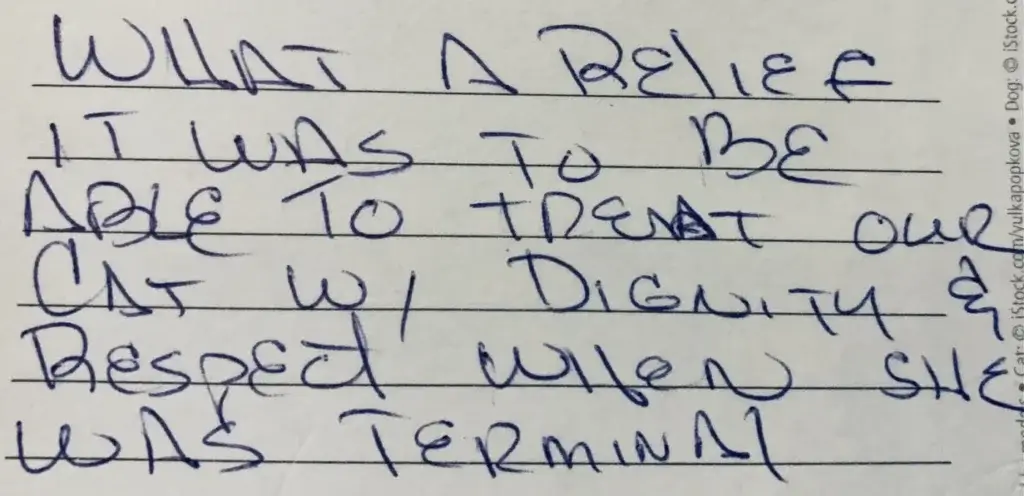 WHAT A RELIEF
IT WAS TO BE
ABLE TO TREAT OUR
CAT W/ DIGNITY &
RESPECT WHEN SHE
WAS TERMINAL
Cat: © iStock.com/vulkapopkova • Dog: © iStock.c